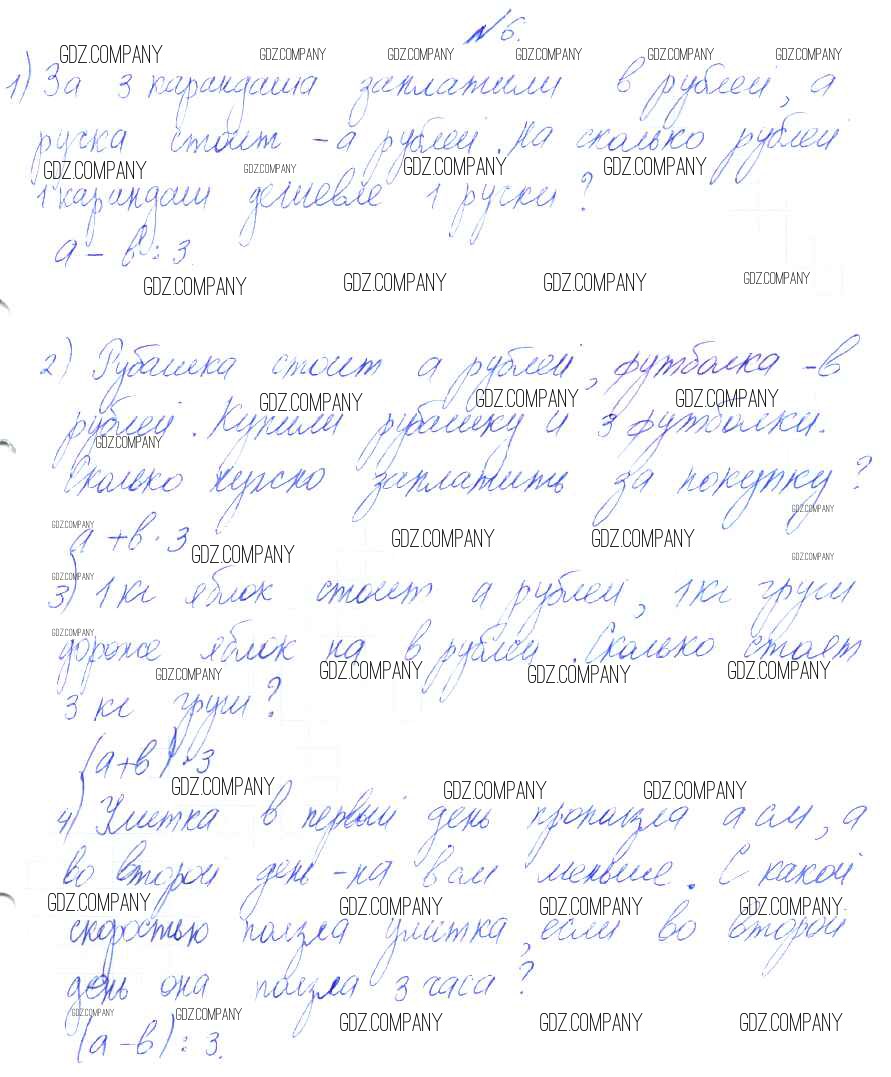 № 6.
GDZ.COMPANY GDZ.COMPANY GDZ.COMPANY GDZ.COMPANY GDZ.COMPANY GDZ.COMPANY
1) За 3 карандаша заплатили в рублей, а
ручка стоит - а рублей. На сколько рублей
GDZ.COMPANY GDZ.COMPANY GDZ.COMPANY GDZ.COMPANY
1 карандаш дешевле 1 ручки?
а - в : 3.
GDZ.COMPANY GDZ.COMPANY GDZ.COMPANY GDZ.COMPANY
2) Рубашка стоит а рублей, футболка - в
GDZ.COMPANY GDZ.COMPANY GDZ.COMPANY
рублей. Купили рубашку и 3 футболки.
GDZ.COMPANY
Сколько нужно заплатить за покупку?
GDZ.COMPANY
GDZ.COMPANY
а + в · 3
GDZ.COMPANY GDZ.COMPANY GDZ.COMPANY GDZ.COMPANY
GDZ.COMPANY
3) 1 кг яблок стоит а рублей, 1 кг груш
GDZ.COMPANY
дороже яблок на в рублей. Сколько стоят
GDZ.COMPANY GDZ.COMPANY GDZ.COMPANY GDZ.COMPANY
3 кг груш?
(а + в) · 3
GDZ.COMPANY GDZ.COMPANY GDZ.COMPANY
4) Улитка в первый день проползла а см, а
во второй день - на в см меньше. С какой
GDZ.COMPANY GDZ.COMPANY GDZ.COMPANY GDZ.COMPANY
скоростью ползла улитка, если во второй
день она ползла 3 часа?
GDZ.COMPANY GDZ.COMPANY GDZ.COMPANY GDZ.COMPANY GDZ.COMPANY
(а - в) : 3.